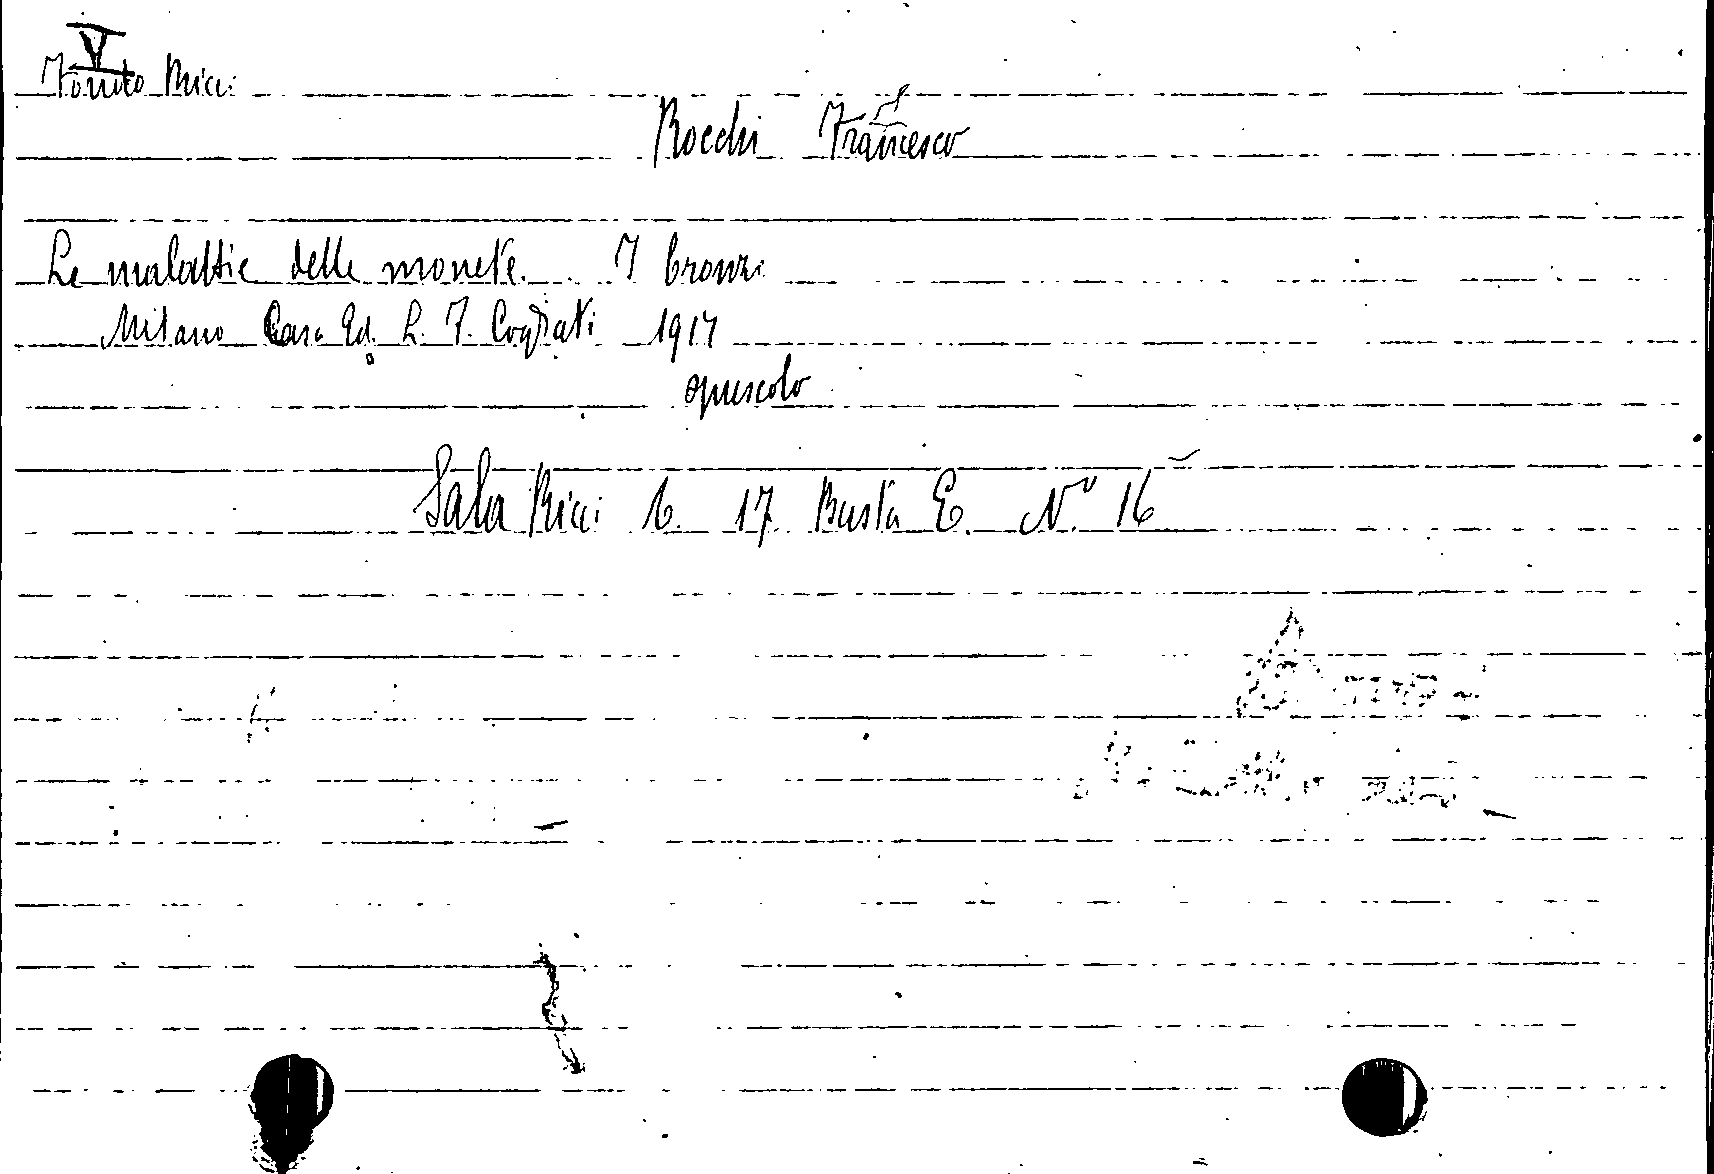 V
Fondo Ricci
Rocchi Francesco
Le malattie delle monete. I bronzi
Milano Casa Ed. L. F. Cogliati 1917
opuscolo
Sala Ricci 6. 17 Busta E. N.o 16